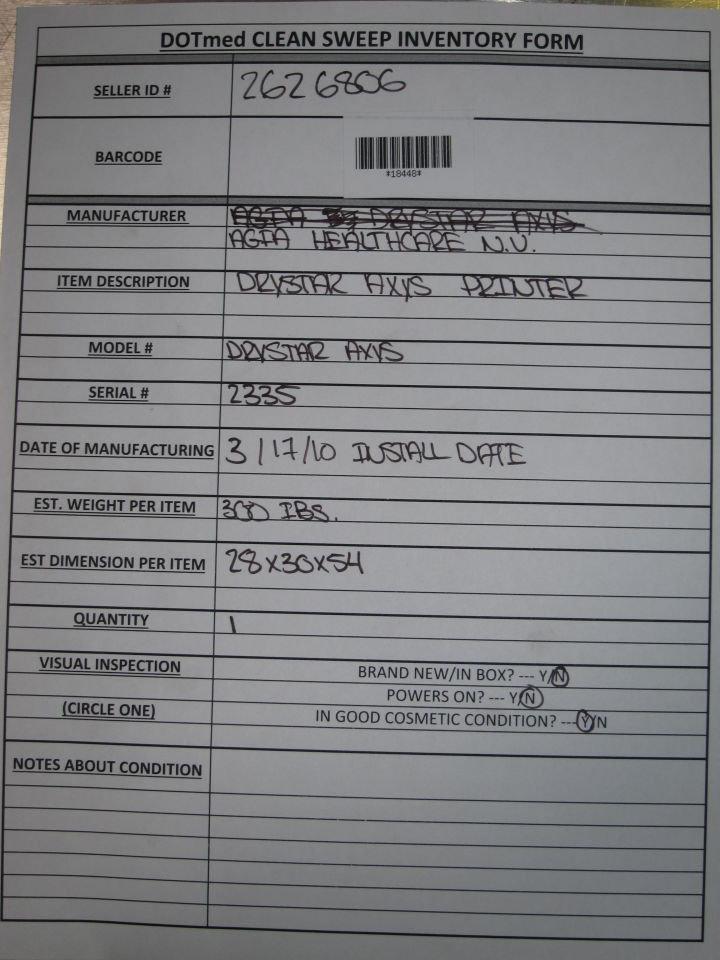 DOTmed CLEAN SWEEP INVENTORY FORM
SELLER ID # 2626806
BARCODE
*18448*
MANUFACTURER AGFA DRYSTAR AXIS
AGFA HEALTHCARE N.V.
ITEM DESCRIPTION DRYSTAR AXYS PRINTER
MODEL # DRYSTAR AXYS
SERIAL # 2335
DATE OF MANUFACTURING 3/17/10 INSTALL DATE
EST. WEIGHT PER ITEM 300 LBS.
EST DIMENSION PER ITEM 28X30X54
QUANTITY 1
VISUAL INSPECTION BRAND NEW/IN BOX? --- Y/N
POWERS ON? --- Y/N
(CIRCLE ONE) IN GOOD COSMETIC CONDITION? ---Y/N
NOTES ABOUT CONDITION